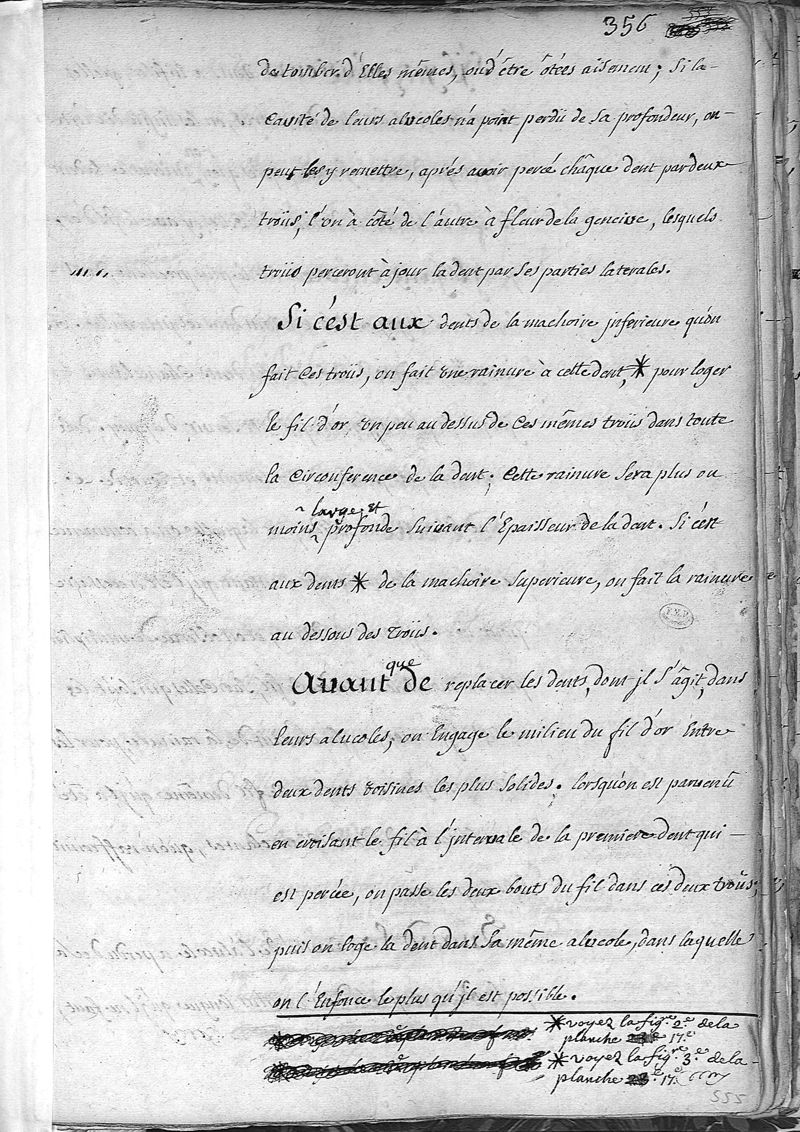 356
de tomber d'Elles mêmes, ou d'être ôtées aisement; Si la-
Cavité de leurs alveoles n'a point perdü de sa profondeur, on-
peut les y remettre, aprés avoir percé châque dent par deux
troüs, l'on à côté de l'autre à fleur de la gencive, lesquels
troüs perceront à jour la dent par ses parties laterales.
Si c'est aux dents de la machoire jnferieure qu'on
fait Ces troüs, on fait une rainure à cette dent, * pour loger
le fil d'or un peu au dessus de Ces mêmes troüs dans toute
la Circonference de la dent; Cette rainure sera plus ou
large, et
moins profonde suivant l'Epaisseur de la dent. Si c'est
aux dents * de la machoire Superieure, on fait la rainure
au dessous des troüs.
que
Avant de replacer les dents, dont jl s'âgit, dans
leurs alveoles, on Engage le milieu du fil d'or Entre
deux dents voisines les plus solides; lorsqu'on est parvenû
en croisant le fil à l'jntervale de la premiere dent qui-
est percée, on passe les deux bouts du fil dans ces deux troüs,
puis on loge la dent dans sa même alveole, dans laquelle
on l'Enfonce le plus qu'jl est possible.
* voyez la fig.re 2.e de la
planche 17.e
* voyez la fig.re 3.e de la-
planche 17.e
555